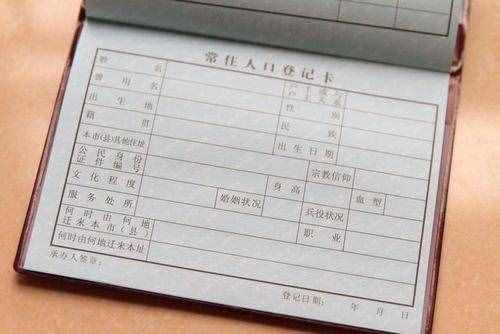 常住人口登记卡
姓名
曾用名 性别
出生地 民族
籍贯 出生日期
本市(县)其他住址 宗教信仰
公民身份
证件编号 身高 血型
文化程度 婚姻状况 兵役状况
服务处所 职业
何时由何地
迁来本市(县)
何时由何地迁来本址
承办人签章：
登记日期： 年 月 日